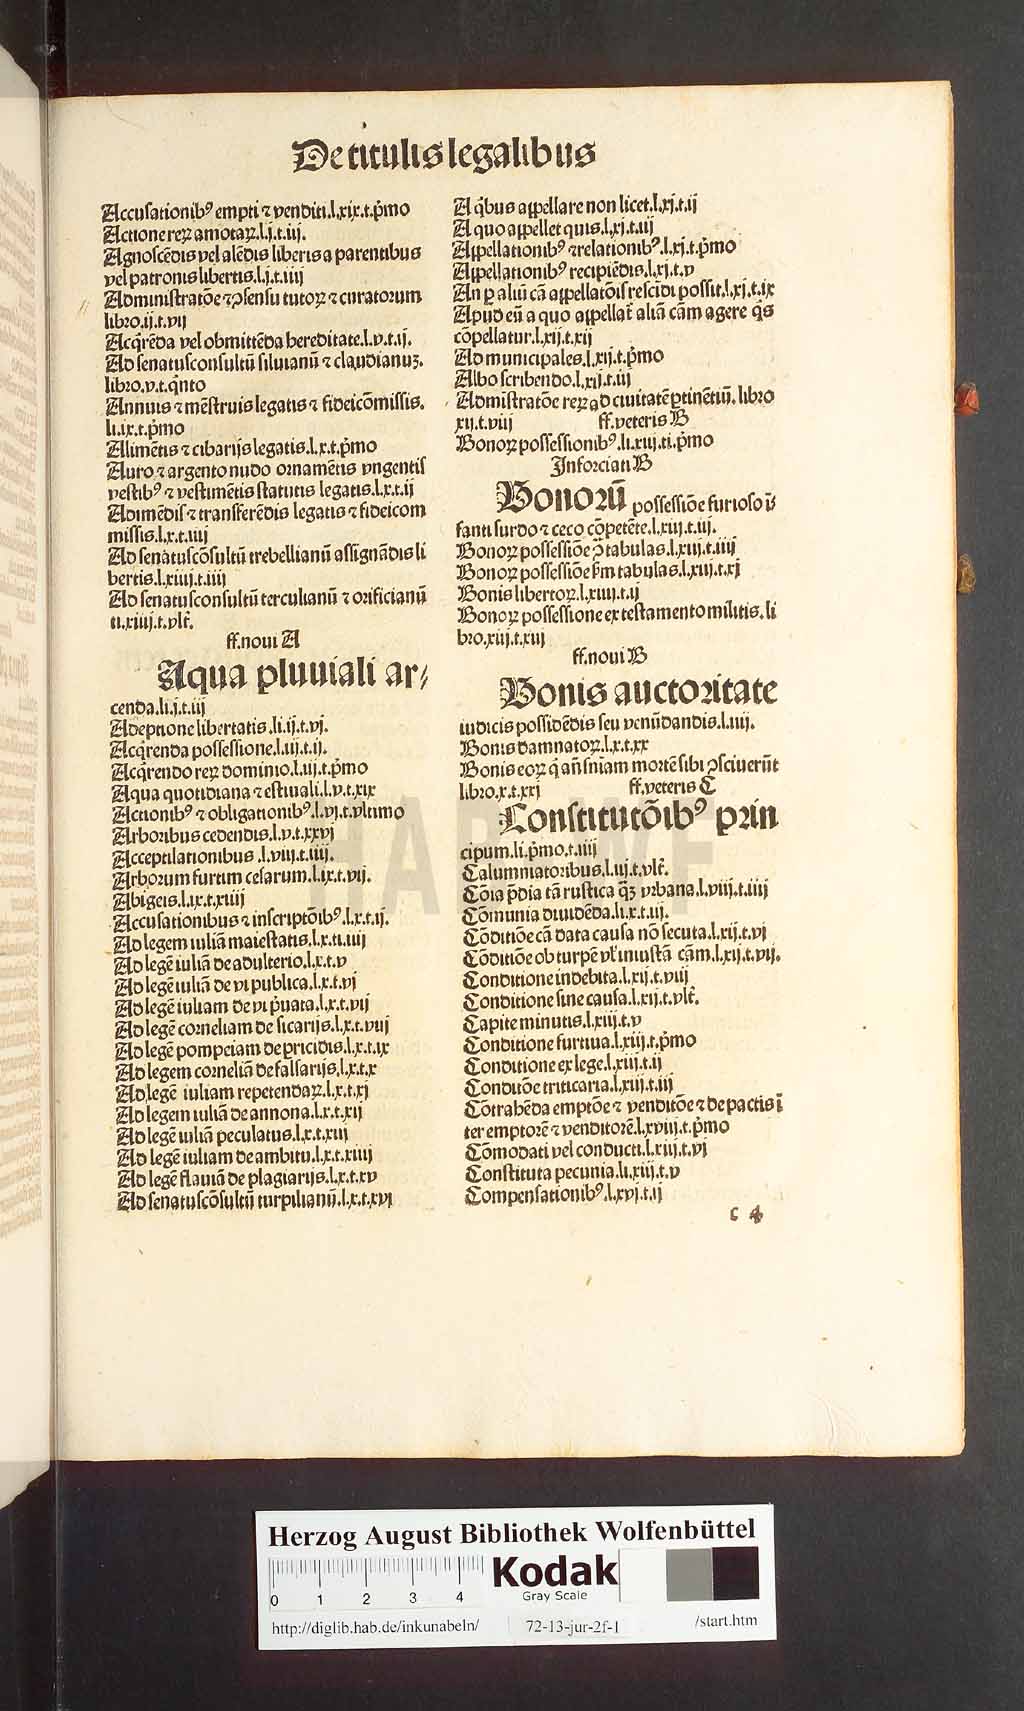 De titulis legalibus
Accusationibꝰ empti ⁊ venditi.l.xix.t.pͥmo
Actione reꝝ amotaꝝ.l.j.t.iij.
Agnoscēdis vel alēdis liberis a parentibus
vel patronis libertis.l.j.t.iiij
Administratōe ⁊ ꝯsensu tutoꝝ ⁊ curatorum
libro.ij.t.vij
Acq̄rēda vel obmittēda hereditate.l.v.t.ij.
Ad senatusconsultū siluianū ⁊ claudianuꝫ.
libro.v.t.q̄nto
Annuis ⁊ mēstruis legatis ⁊ fideicōmissis.
li.ix.t.pͥmo
Alimētis ⁊ cibarijs legatis.l.x.t.pͥmo
Auro ⁊ argento nudo ornamētis vngentis
vestibꝰ ⁊ vestimētis statutis legatis.l.x.t.ij
Adimēdis ⁊ transferēdis legatis ⁊ fideicom
missis.l.x.t.iiij
Ad senatuscōsultū trebellianū assignādis li
bertis.l.xiiij.t.iiij
Ad senatusconsultū terculianū ⁊ orificianū
ti.xiiij.t.vlt̄.
ff.noui A
Aqua pluuiali ar⸗
cenda.li.j.t.iij
Adeptione libertatis.li.ij.t.vj.
Acq̄renda possessione.l.iij.t.ij.
Acq̄rendo reꝝ dominio.l.iij.t.pͥmo
Aqua quotidiana ⁊ estiuali.l.v.t.xix
Actionibꝰ ⁊ obligationibꝰ.l.vj.t.vltimo
Arboribus cedendis.l.v.t.xxvj
Acceptilationibus .l.viij.t.iiij.
Arborum furtim cesarum.l.ix.t.vij.
Abigeis.l.ix.t.xiiij
Accusationibus ⁊ inscriptōibꝰ.l.x.t.ij.
Ad legem iuliā maiestatis.l.x.ti.iiij
Ad legē iuliā de adulterio.l.x.t.v
Ad legē iuliā de vi publica.l.x.t.vj
Ad legē iuliam de vi pͥuata.l.x.t.vij
Ad legē corneliam de sicarijs.l.x.t.viij
Ad legē pompeiam de pricidis.l.x.t.ix
Ad legem corneliā de falsarijs.l.x.t.x
Ad legē iuliam repetendaꝝ.l.x.t.xj
Ad legem iuliā de annona.l.x.t.xij
Ad legē iuliā peculatus.l.x.t.xiij
Ad legē iuliam de ambitu.l.x.t.xiiij
Ad legē flauiā de plagiarijs.l.x.t.xv
Ad senatuscōsultū turpilianū.l.x.t.xvj
A q̄bus appellare non licet.l.xj.t.ij
A quo appellet quis.l.xj.t.iij
Appellationibꝰ ⁊ relationibꝰ.l.xj.t.pͥmo
Appellationibꝰ recipiēdis.l.xj.t.v
An ꝑ aliū cā appellatōis rescidi possit.l.xj.t.ix
Apud eū a quo appellat̄ aliā cām agere q̄s
cōpellatur.l.xij.t.xij
Ad municipales.l.xij.t.pͥmo
Albo scribendo.l.xij.t.iij
Admistratōe reꝝ ad ciuitatē ꝑtinētiū. libro
xij.t.viij ff.veteris B
Bonoꝝ possessionibꝰ.li.xiij.ti.pͥmo
Inforciati B
Bonorū possessiōe furioso ī
fanti surdo ⁊ ceco cōpetēte.l.xiij.t.iij.
Bonoꝝ possessiōe ꝯ tabulas.l.xiij.t.iiij
Bonoꝝ possessiōe ẜm tabulas.l.xiij.t.xj
Bonis libertoꝝ.l.xiiij.t.ij
Bonoꝝ possessione ex testamento militis.li
bro.xiij.t.xiij
ff.noui B
Bonis auctoritate
iudicis possidēdis seu venūdandis.l.iiij.
Bonis damnatoꝝ.l.x.t.xx
Bonis eoꝝ q̄ an̄ sn̄iam mortē sibi ꝯsciuerūt
libro.x.t.xxj ff.veteris C
Constitutōibꝰ prin
cipum.li.pͥmo.t.iiij
Calumniatoribus.l.iij.t.vlt̄.
Cōia p̄dia tā rustica q̄ꝫ vrbana.l.viij.t.iiij
Cōmunia diuidēda.li.x.t.iij.
Cōditiōe cā data causa nō secuta.l.xij.t.vj
Cōditiōe ob turpē vl̓ iniustā cām.l.xij.t.vij.
Conditione indebita.l.xij.t.viij
Conditione sine causa.l.xij.t.vlt̄.
Capite minutis.l.xiij.t.v
Conditione furtiua.l.xiij.t.pͥmo
Conditione ex lege.l.xiij.t.ij
Conditōe triticaria.l.xiij.t.iij
Cōtrahēda emptōe ⁊ venditōe ⁊ de pactis ī
ter emptorē ⁊ venditorē.l.xviij.t.pͥmo
Cōmodati vel conducti.l.xiij.t.vj
Constituta pecunia.li.xiij.t.v
Compensationibꝰ.l.xvj.t.ij
c 4
HAB WF
Herzog August Bibliothek Wolfenbüttel
0 1 2 3 4
Kodak
Gray Scale
http://diglib.hab.de/inkunabeln/ 72-13-jur-2f-1 /start.htm